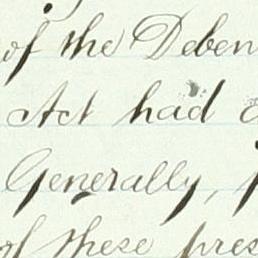 of the Deben
Act had
Generally,
of these pres